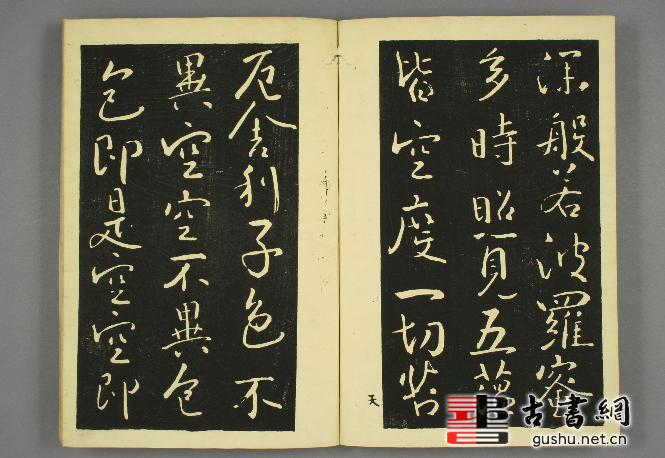 深般若波羅蜜
多時照見五蘊
皆空度一切苦
天
厄舍利子色不
異空空不異色
色即是空空即
古書網
gushu.net.cn